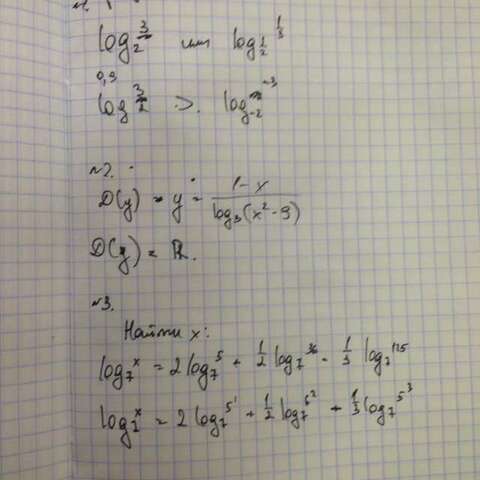 log₂ 3/2 или log_{1/2} 1/3
0,9
log 3/2 > log_{-2} -3
№2.
D(y) = y = (1-x)/(log₃(x²-9))
D(y) = R.
№3.
Найти x:
log₇ x = 2log₇ 5 + 1/2 log₇ 36 - 1/3 log₇ 125
log₇ x = 2log₇ 5¹ + 1/2 log₇ 6² + 1/3 log₇ 5³